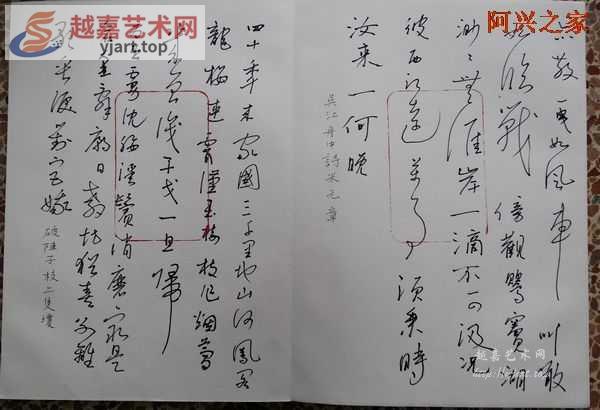 越嘉艺术网
yjart.top
阿兴之家
散一曳如风车叫啖
如临战傍观鹦窦湖
渺渺无涯岸一滴不可汲况
彼西江远万事须乘时
汝来一何晚
吴江舟中诗米元章
四十年来家国三千里地山河凤阁
龙楼连霄汉玉树枝作烟萝
几曾识干戈一旦归
为臣虏沈腰潘鬓消磨最是
仓皇辞庙日教坊犹奏别离
歌垂泪对宫娥
破阵子
越嘉艺术网